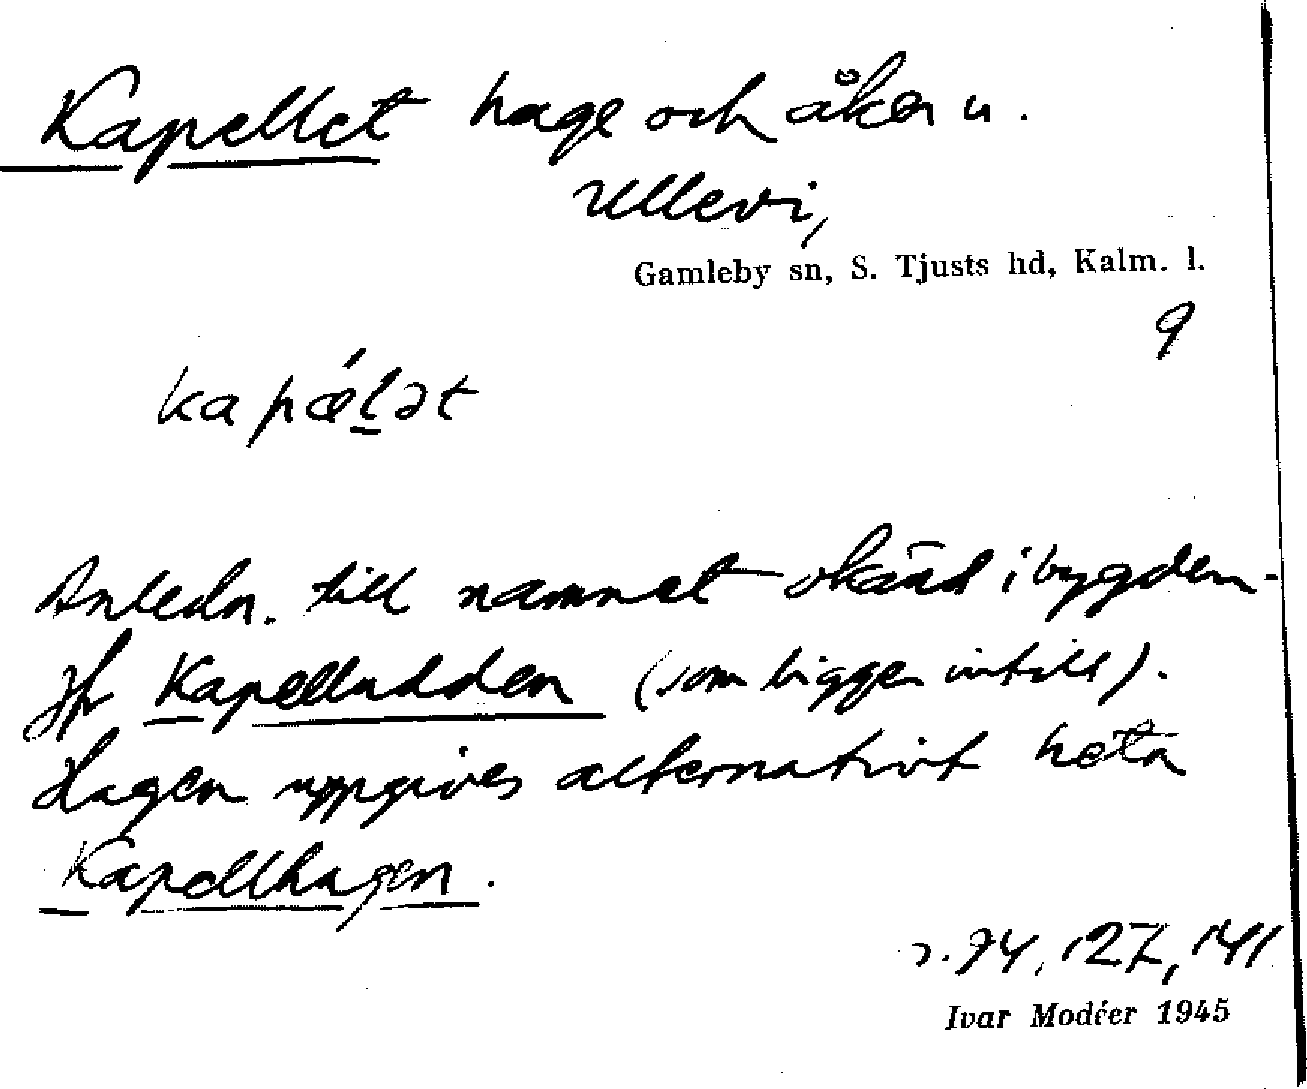 Kapellet hage och åker u.
Ullevi,
Gamleby sn, S. Tjusts hd, Kalm. l.
9
kapǽl̠ət
Anledn. till namnet okänd i bygden -
Jfr Kapelludden (som ligger intill).
Hagen uppgives alternativt heta
Kapellhagen.
s. 94, 127, 141
Ivar Modéer 1945